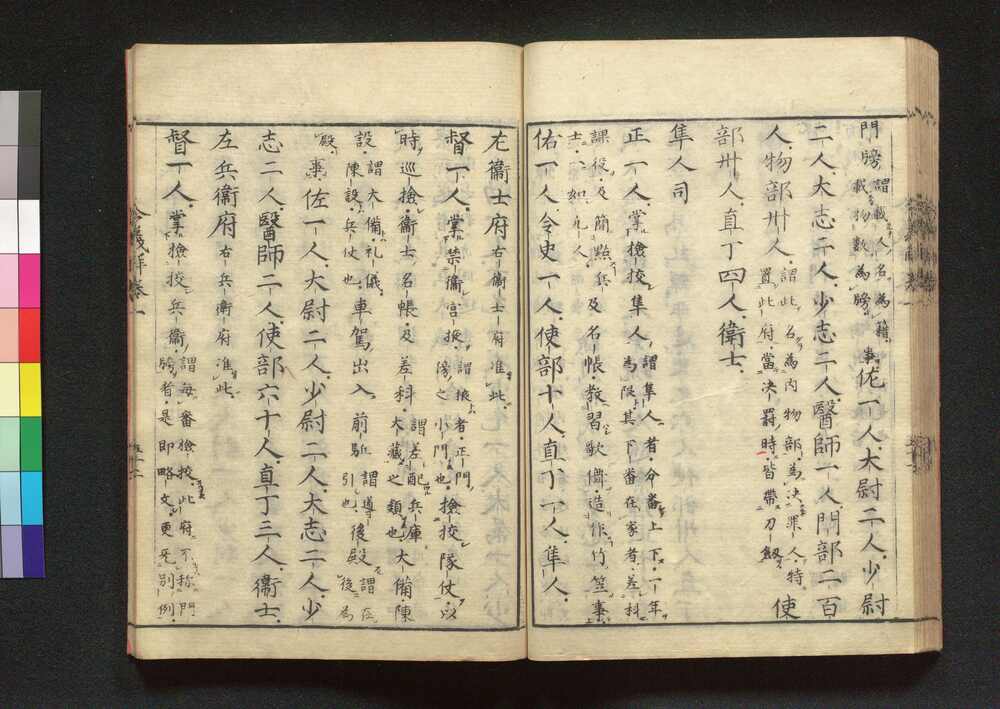 門牓謂載人名為籍載物數為牓事佐一人大尉二人少尉
二人大志二人少志二人醫師一人門部二百
人物部卅人謂此名為内物部為決罪人特置此府當決罸時皆帶刀劔使
部卅人直丁四人衛士
隼人司
正一人掌檢校隼人謂隼人者分番上下一年為限其下番在家者差科
課役及簡點兵士一如凡人及名帳教習歌儛造作竹笠事
佑一人令史一人使部十人直丁一人隼人
左衞士府右衞士府准此
督一人掌禁衞宮掖謂掖者正門傍之小門也檢挍隊仗以
時巡檢衞士名帳及差科謂差配兵庫大藏之類也大備陳
設謂大備礼儀陳設兵仗也車駕出入前駈謂導引也後殿謂在後為
殿事佐一人大尉二人少尉二人大志二人少
志二人醫師二人使部六十人直丁三人衞士
左兵衞府右兵衞府准此
督一人掌檢挍兵衞謂毎番檢挍此府不稱門牓者是即略文更无別例
令義解卷一